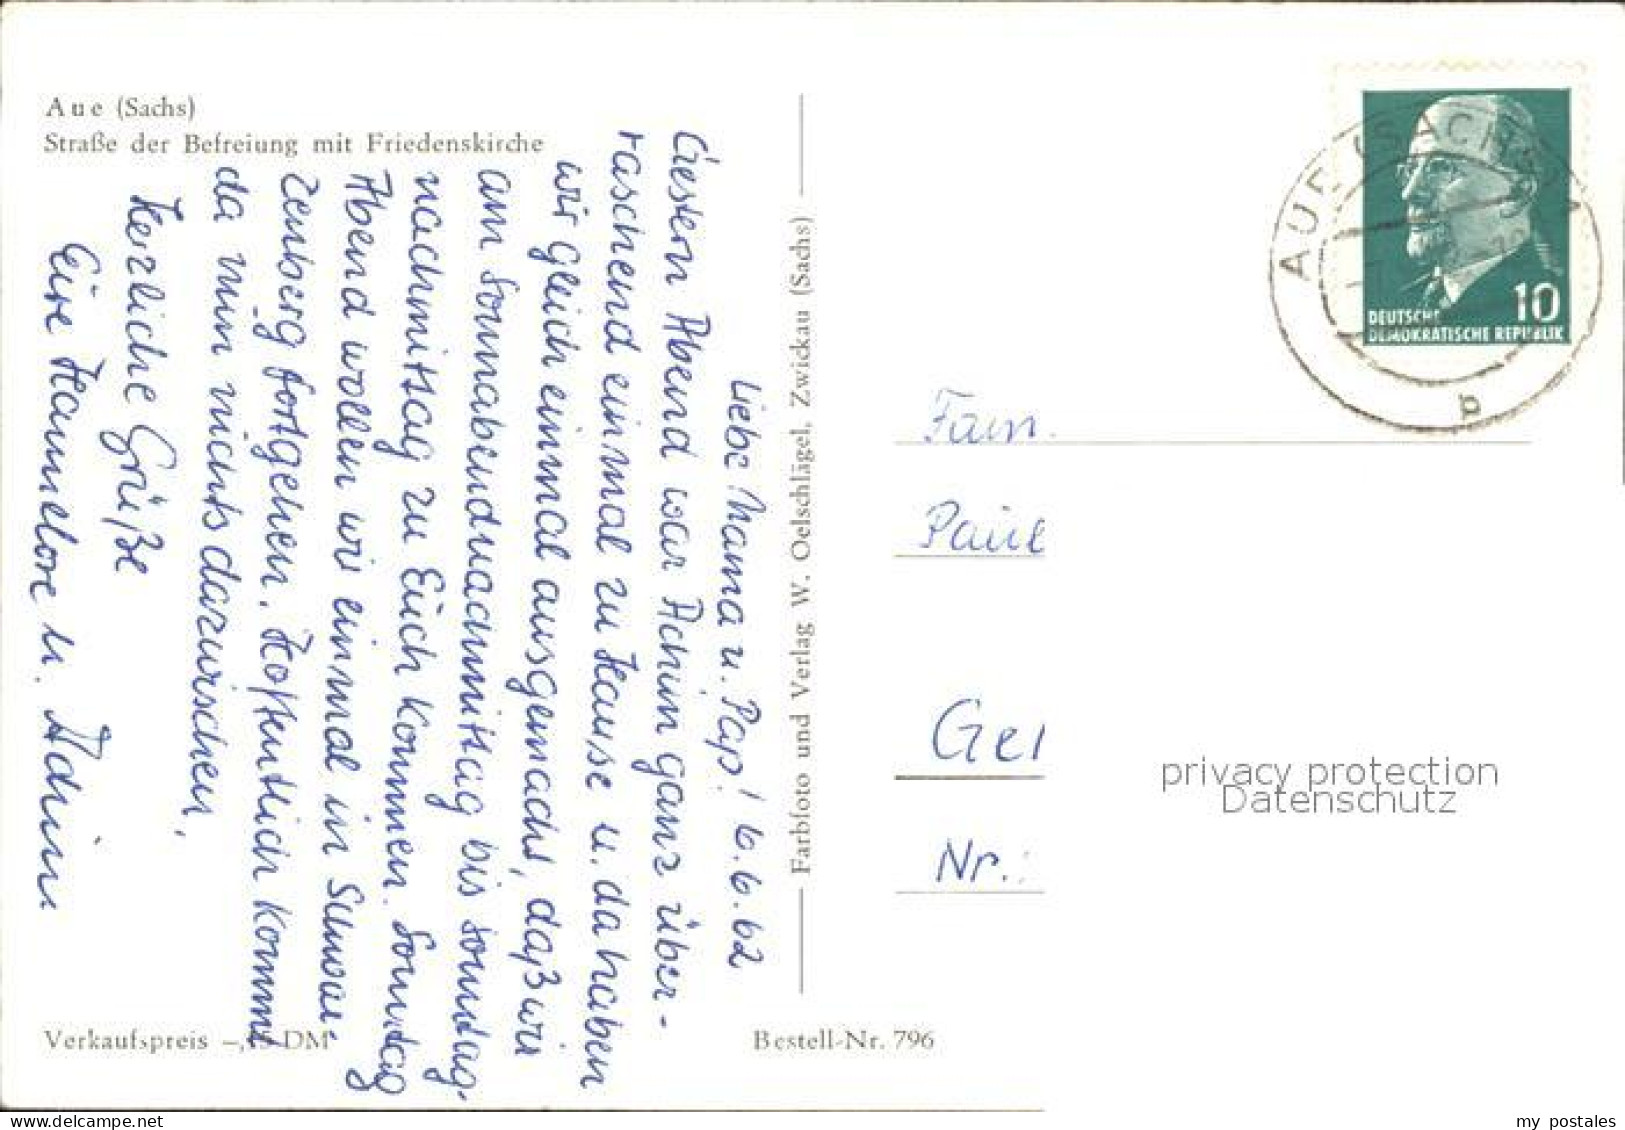 Aue (Sachs)
Straße der Befreiung mit Friedenskirche
Liebe Mama u. Pap! 6.6.62
Gestern Abend war Achim ganz über-
raschend einmal zu Hause u. da haben
wir gleich einmal ausgemacht, daß wir
am Sonnabendnachmittag bis Sonntag-
nachmittag zu Euch kommen. Sonntag
Abend wollen wir einmal in Schwar-
zenberg fortgehen. Hoffentlich kommt
da nun nichts dazwischen.
Herzliche Grüße
Eure Hannelore u. Achim
Farbfoto und Verlag W. Oelschlägel, Zwickau (Sachs)
Verkaufspreis –,15 DM
Bestell-Nr. 796
AUE (SACHS)
b
10
DEUTSCHE
DEMOKRATISCHE REPUBLIK
Fam.
Paul
Ger
Nr.:
privacy protection
Datenschutz
my postales
www.delcampe.net